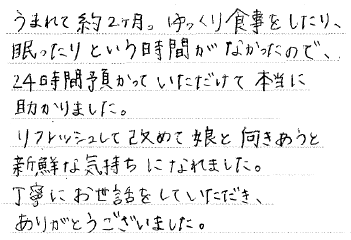 うまれて約2ヶ月。ゆっくり食事をしたり、
眠ったりという時間がなかったので、
24時間預かっていただけて本当に
助かりました。
リフレッシュして改めて娘と向きあうと
新鮮な気持ちになれました。
丁寧にお世話をしていただき、
ありがとうございました。